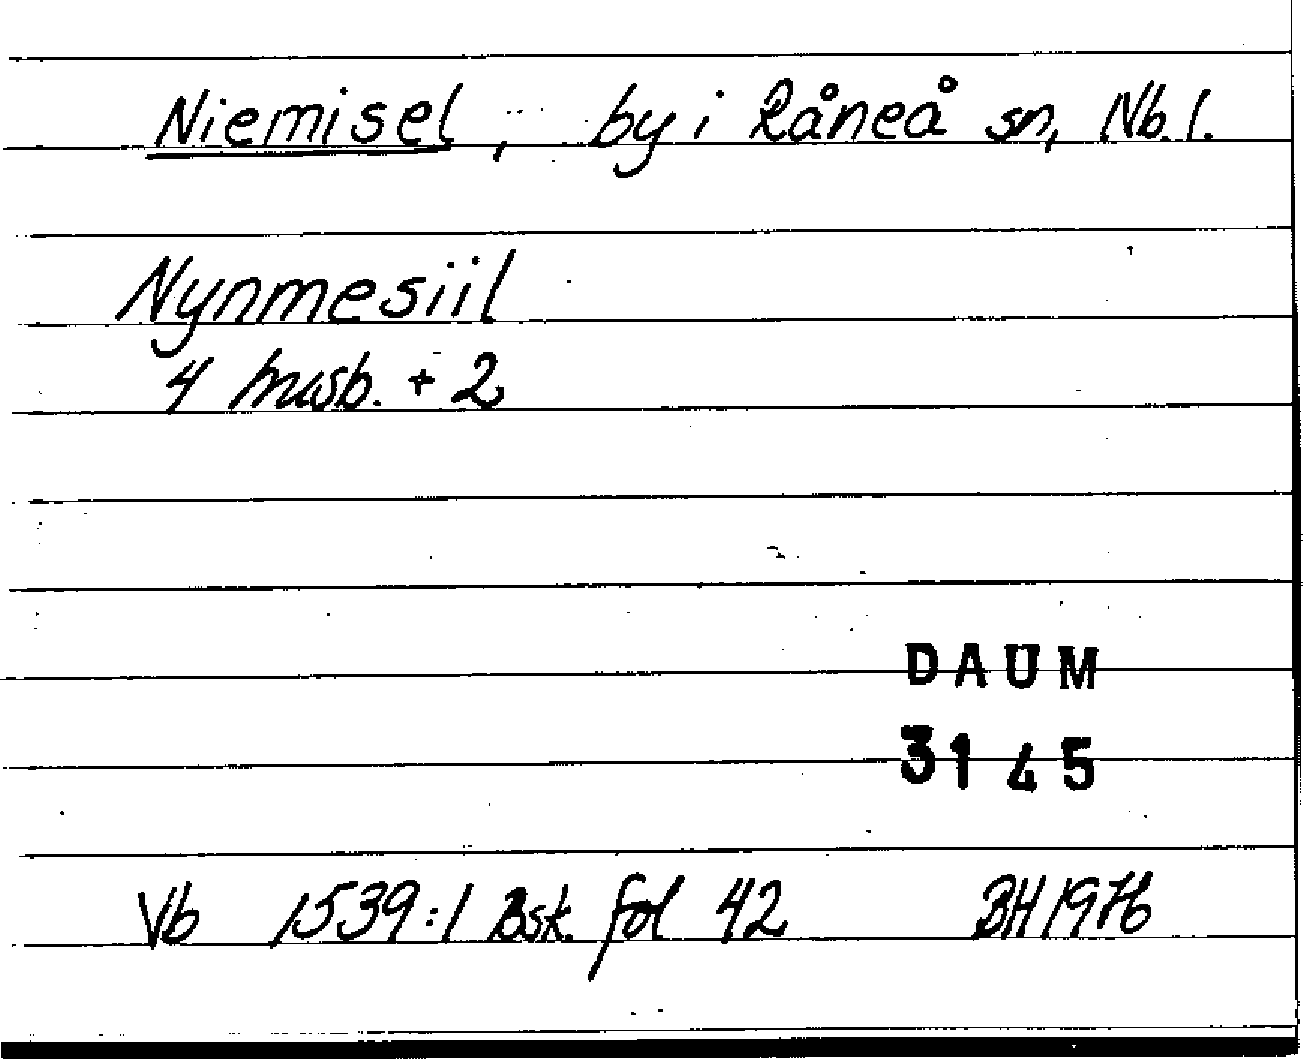 Niemisel, by i Råneå sn, Nb. l.
Nynmesiil
4 husb. + 2
DAUM
3145
Vb 1539:1 Bsk. fol 42 BH 1976